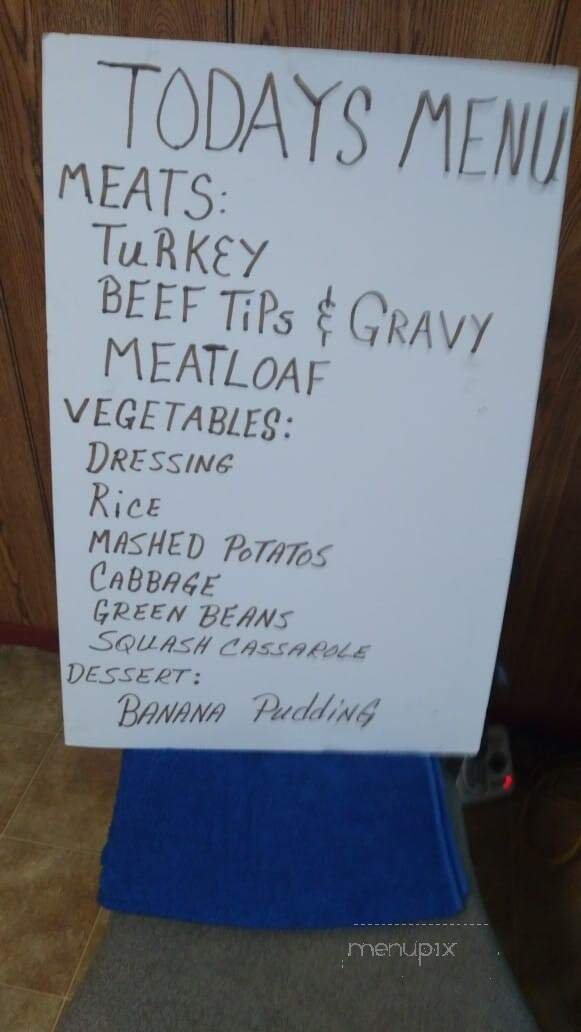 TODAYS MENU
MEATS:
TuRKEY
BEEF TiPs & GRAVY
MEATLOAF
VEGETABLES:
DRESSING
RiCE
MASHED PoTATOS
CABBAGE
GREEN BEANS
SQUASH CASSAROLE
DESSERT:
BANANA PuddiNG
menupix